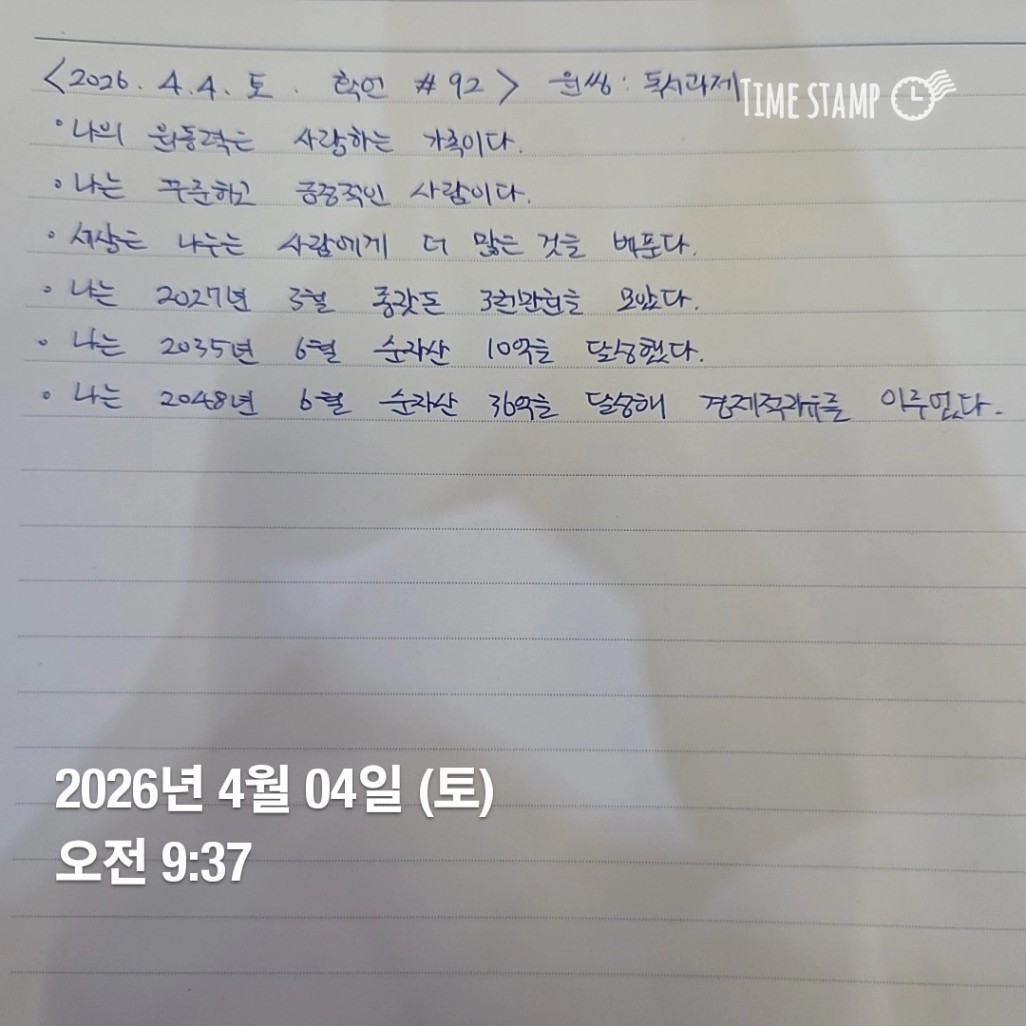 <2026. 4.4. 토. 확언 #92> 원씽 : 독서과제
TIME STAMP
• 나의 원동력은 사랑하는 가족이다.
• 나는 꾸준하고 긍정적인 사람이다.
• 세상은 나누는 사람에게 더 많은 것을 베푼다.
• 나는 2027년 3월 종잣돈 3천만원을 모았다.
• 나는 2035년 6월 순자산 10억을 달성했다.
• 나는 2048년 6월 순자산 36억을 달성해 경제적자유를 이루었다.
2026년 4월 04일 (토)
오전 9:37